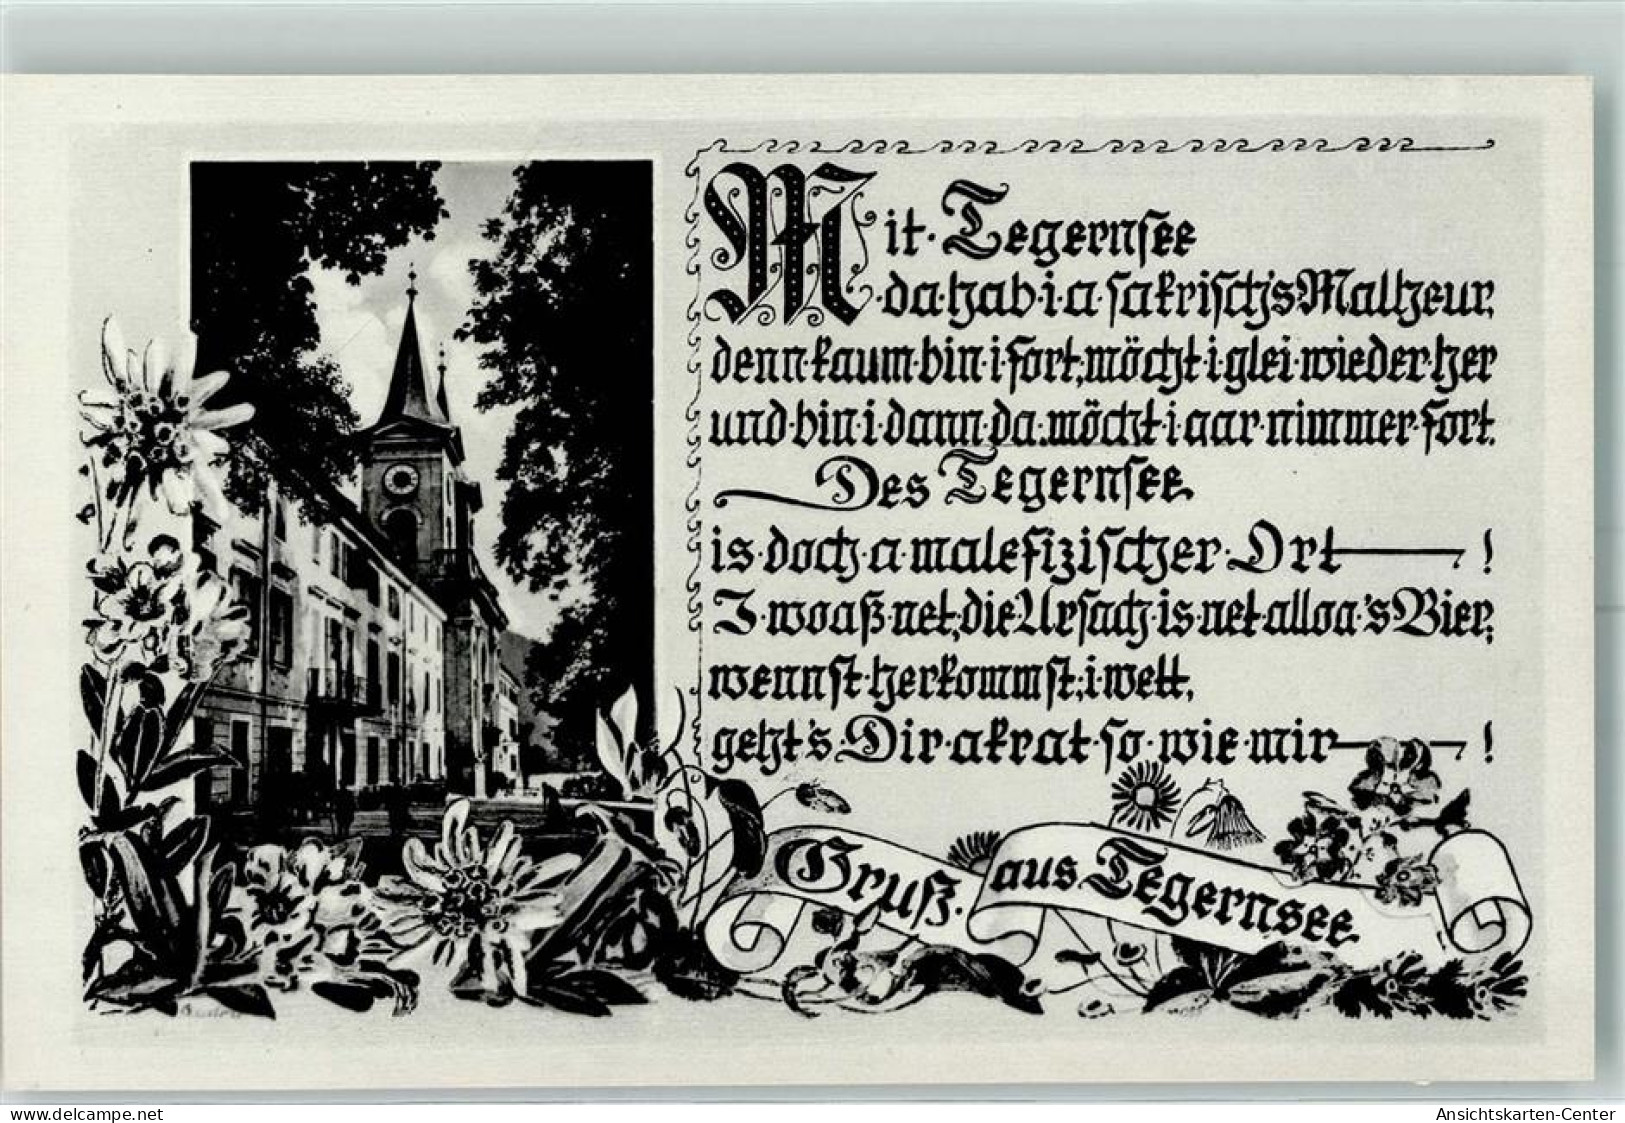 Mit Tegernsee
da hab i a sakrisch's Malheur,
denn kaum bin i fort, möcht i glei wieder her
und bin i dann da, möcht i gar nimmer fort.
Des Tegernsee
is doch a malefizischer Ort !
I woaß net, die Ursach is net alloa 's Bier,
wennst herkommst, i wett,
geht's Dir akrat so wie mir !
Gruß aus Tegernsee
www.delcampe.net
Ansichtskarten-Center